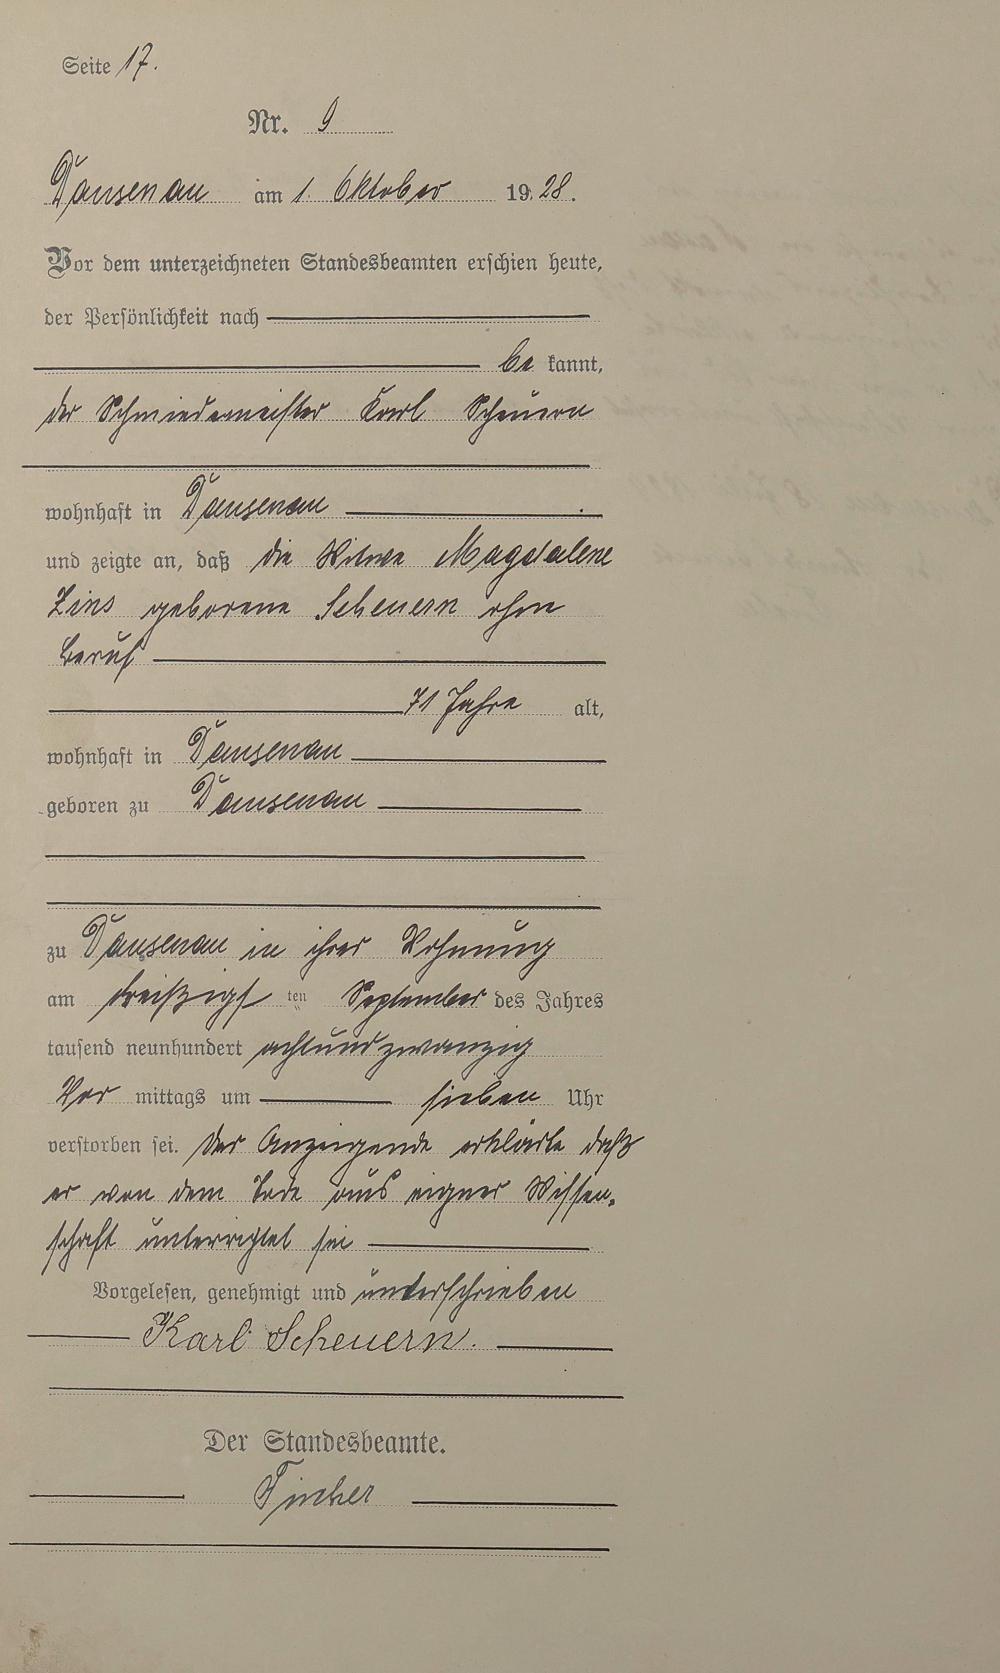 Seite 17.
Nr. 9
Dausenau am 1. Oktober 1928.
Vor dem unterzeichneten Standesbeamten erschien heute,
der Persönlichkeit nach
be kannt,
der Schmiedemeister Karl Scheuern
wohnhaft in Dausenau
und zeigte an, daß die Witwe Magdalene
Zins geborene Scheuern ohne
Beruf
71 Jahre alt,
wohnhaft in Dausenau
geboren zu Dausenau
zu Dausenau in ihrer Wohnung
am dreißigs ten September des Jahres
tausend neunhundert achtundzwanzig
Vor mittags um sieben Uhr
verstorben sei. Der Anzeigende erklärte daß
er von dem Tode aus eigner Wissen-
schaft unterrichtet sei
Vorgelesen, genehmigt und unterschrieben
Karl Scheuern.
Der Standesbeamte.